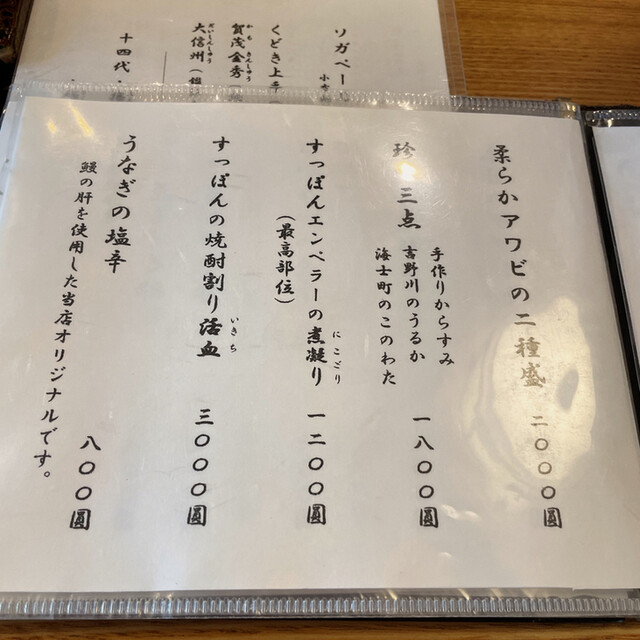 柔らかアワビの二種盛 二〇〇〇圓
珍 三点 一八〇〇圓
手作りからすみ
吉野川のうるか
海士町のこのわた
すっぽんエンペラーの煮凝り 一二〇〇圓
にこごり
(最高部位)
すっぽんの焼酎割り活血 三〇〇〇圓
いきち
うなぎの塩辛 八〇〇圓
鰻の肝を使用した当店オリジナルです。
ソガペー
小布
くどき上手
賀茂金秀
かもきんしゅう
大信州
だいしんしゅう
十四代